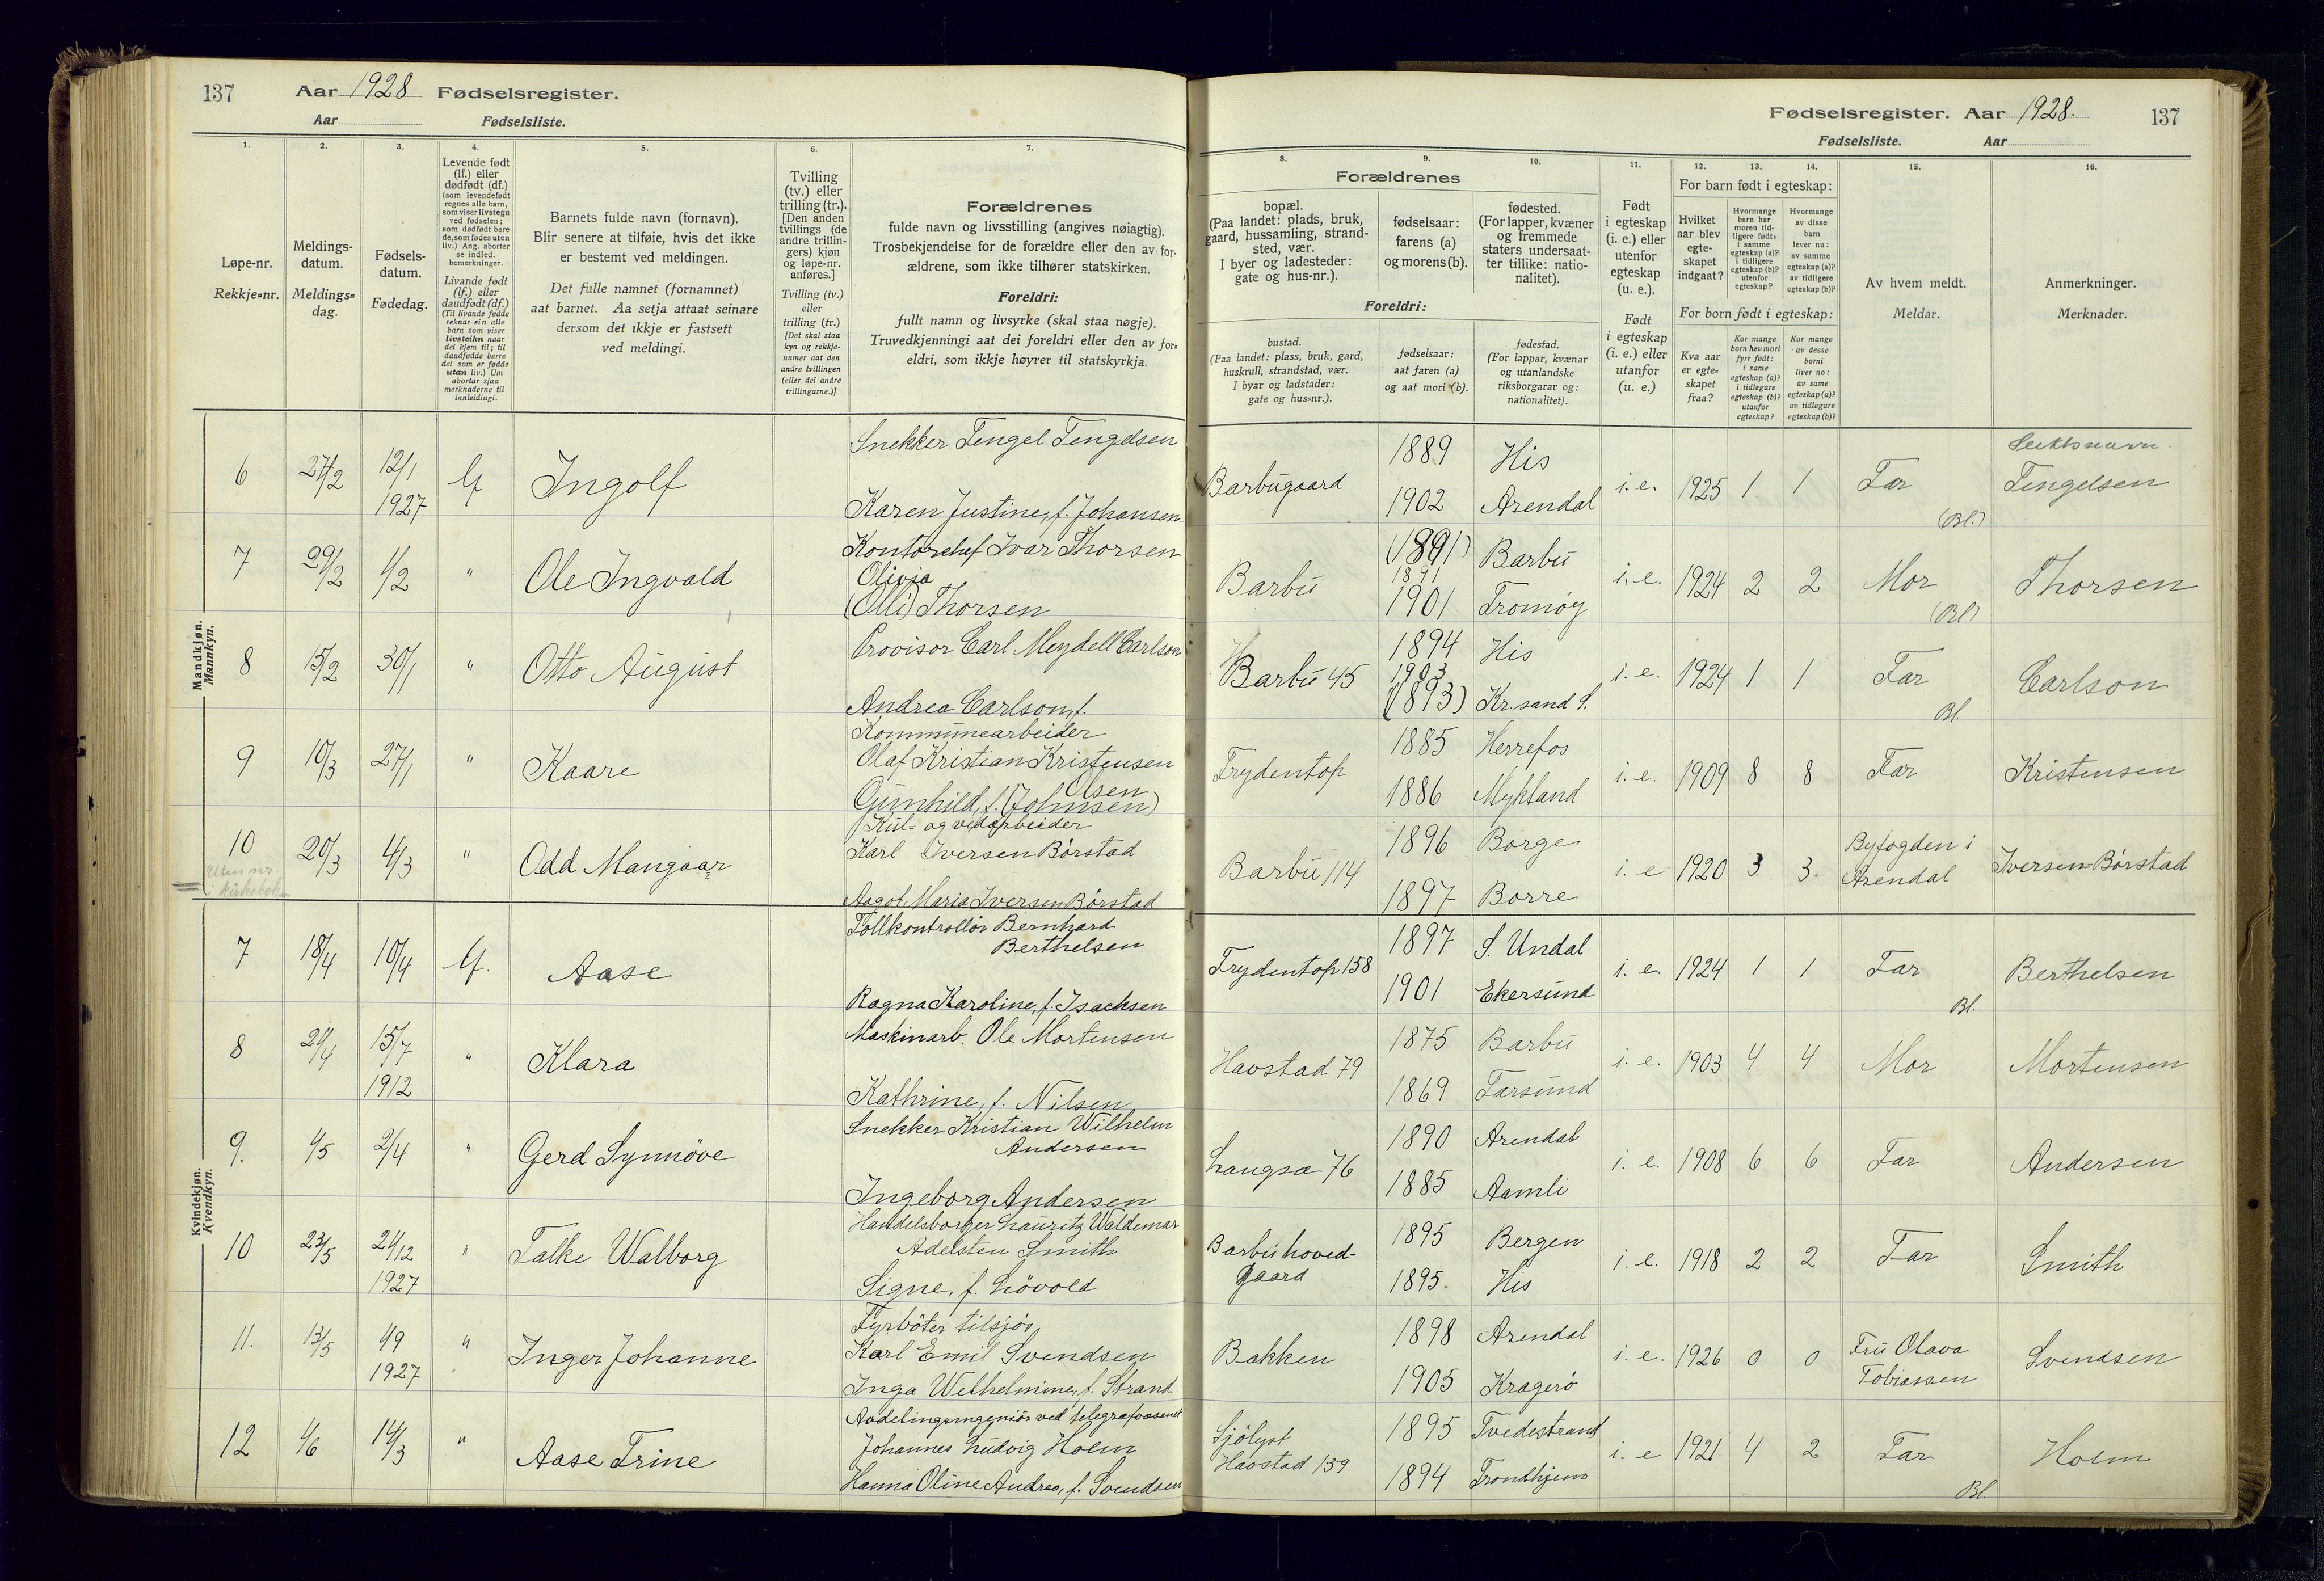 137 Aar 1928 Fødselsregister.
Aar Fødselsliste.
Fødselsregister. Aar 1928. 137
Fødselsliste. Aar
1. 2. 3. 4. 5. 6. 7.
Løpe-nr.
Rekkje=nr.
Meldings-
datum.
Meldings=
dag.
Fødsels-
datum.
Fødedag.
Levende født
(lf.) eller
dødfødt (df.)
(som levendefødt
regnes alle barn,
som viser livstegn
ved fødselen;
som dødfødt bare
de, som fødes uten
liv.) Ang. aborter
se indled.
bemerkninger.
Livande født
(lf.) eller
daudfødt (df.)
(Til livande fødde
reknar ein alle
barn som viser
livsteikn naar
dei kjem til; til
daudfødde berre
dei som er fødde
utan liv.) Um
abortar sjaa
merknaderne til
innleidingi.
Barnets fulde navn (fornavn).
Blir senere at tilføie, hvis det ikke
er bestemt ved meldingen.
Det fulle namnet (fornamnet)
aat barnet. Aa setja attaat seinare
dersom det ikkje er fastsett
ved meldingi.
Tvilling
(tv.) eller
trilling (tr.).
[Den anden
tvillings (de
andre trillin-
gers) kjøn
og løpe-nr.
anføres.]
Tvilling (tv.)
eller
trilling (tr.)
[Det skal staa
kyn og rekkje-
numer aat den
andre tvillingen
(eller dei andre
trillingarne.)]
Forældrenes
fulde navn og livsstilling (angives nøiagtig).
Trosbekjendelse for de forældre eller den av for-
ældrene, som ikke tilhører statskirken.
Foreldri:
fullt namn og livsyrke (skal staa nøgje).
Truvedkjenningi aat dei foreldri eller den av for=
eldri, som ikkje høyrer til statskyrkja.
8. 9. 10. 11. 12. 13. 14. 15. 16.
Forældrenes
bopæl.
(Paa landet: plads, bruk,
gaard, hussamling, strand-
sted, vær.
I byer og ladesteder:
gate og hus-nr.).
fødselsaar:
farens (a)
og morens (b).
fødested.
(For lapper, kvæner
og fremmede
staters undersaat-
ter tillike: natio-
nalitet).
Foreldri:
bustad.
(Paa landet: plass, bruk, gard,
huskrull, strandstad, vær.
I byar og ladstader:
gate og hus=nr.).
fødselsaar:
aat faren (a)
og aat mori (b).
fødestad.
(For lappar, kvænar
og utanlandske
riksborgarar og:
nationalitet).
Født
i egteskap
(i. e.) eller
utenfor
egteskap
(u. e.).
Født
i egteskap
(i. e.) eller
utanfor
(u. e.)
For barn født i egteskap:
Hvilket
aar blev
egte-
skapet
indgaat?
Hvormange
barn har
moren tid-
ligere født:
i samme
egteskap (a)?
i tidligere
egteskap (b)?
utenfor
egteskap?
Hvormange
av disse
barn
lever nu:
av samme
egteskap (a)?
av tidligere
egteskap (b)?
For born født i egteskap:
Kva aar
er egte=
skapet
fraa?
Kor mange
born hev mori
fyrr født:
i same
egteskap (a)?
i tidlegare
egteskap (b)?
utanfor
egteskap?
Kor mange
av desse
borni
liver no:
av same
egteskap (a)?
av tidlegare
egteskap (b)?
Av hvem meldt.
Meldar.
Anmerkninger.
Merknader.
Mandkjøn.
Mannkyn.
Slektsnavn.
Snekker Tengel Tengelsen
6 27/2 12/1 1927 lf Ingolf
Karen Justine, f. Johansen
Barbugaard 1889 His
1902 Arendal i. e. 1925 1 1 Far (Bl.) Tengelsen
7 29/2 1/2 " Ole Ingvald
Kontorchef Ivar Thorsen
Olivia
(Olli) Thorsen
Barbu (1891) Barbu
1891
1901 Tromøy i. e. 1924 2 2 Mor (Bl) Thorsen
8 15/2 30/1 " Otto August
Provisor Carl Meydell Carlson
Andrea Carlson, f.
Barbu 45 1894 His
1903
(1893) Kr.sand S. i. e. 1924 1 1 Far Bl. Carlson
9 10/3 27/1 " Kaare
Kommunearbeider
Olaf Kristian Kristensen
Olsen
Gunhild, f. (Johnsen)
Frydentop 1885 Herrefos
1886 Mykland i. e. 1909 8 8 Far Kristensen
10 20/3 4/3 " Odd Mangaar
Uten nr.
i kirkebok
Kul- og vedarbeider
Karl Iversen Børstad
Aagot Maria Iversen Børstad
Barbu 114 1896 Borge
1897 Borre i. e 1920 3 3. Byfogden i
Arendal Iversen-Børstad
Kvindekjøn.
Kvendkyn.
7 18/4 10/4 lf. Aase
Tollkontrollör Bernhard
Berthelsen
Ragna Karoline, f. Isachsen
Frydentop 158 1897 S. Undal
1901 Ekersund i. e. 1924 1 1 Far Bl. Berthelsen
8 21/4 15/7 1912 " Klara
Maskinarb. Ole Mortensen
Kathrine, f. Nilsen
Havstad 79 1875 Barbu
1869 Farsund i. e. 1903 4 4 Mor Mortensen
9. 1/5 2/4 " Gerd Synnöve
Snekker Kristian Wilhelm
Andersen
Ingeborg Andersen
Langsæ 76 1890 Arendal
1885 Aamli i. e. 1908 6 6 Far Andersen
10 23/5 24/12 1927 " Falke Walborg
Handelsborger Lauritz Waldemar
Adelsten Smith
Signe, f. Lövold
Barbu hoved-
gaard 1895 Bergen
1895. His i. e. 1918 2 2 Far Smith
11. 13/5 4/9 1927 " Inger Johanne
Fyrböter tilsjös,
Karl Emil Svendsen
Inga Wilhelmine, f. Strand
Bakken 1898 Arendal
1905 Kragerö i. e. 1926 0 0 Fru Olava
Tobiassen Svendsen
12 1/6 14/3 " Aase Trine
Avdelingsingeniör ved telegrafvæsenet
Johannes Ludvig Holm
Hanna Oline Andrea, f. Svendsen
Sjölyst
Havstad 159 1895 Tvedestrand
1894 Trondhjem i. e 1921 4 2 Far Bl. Holm